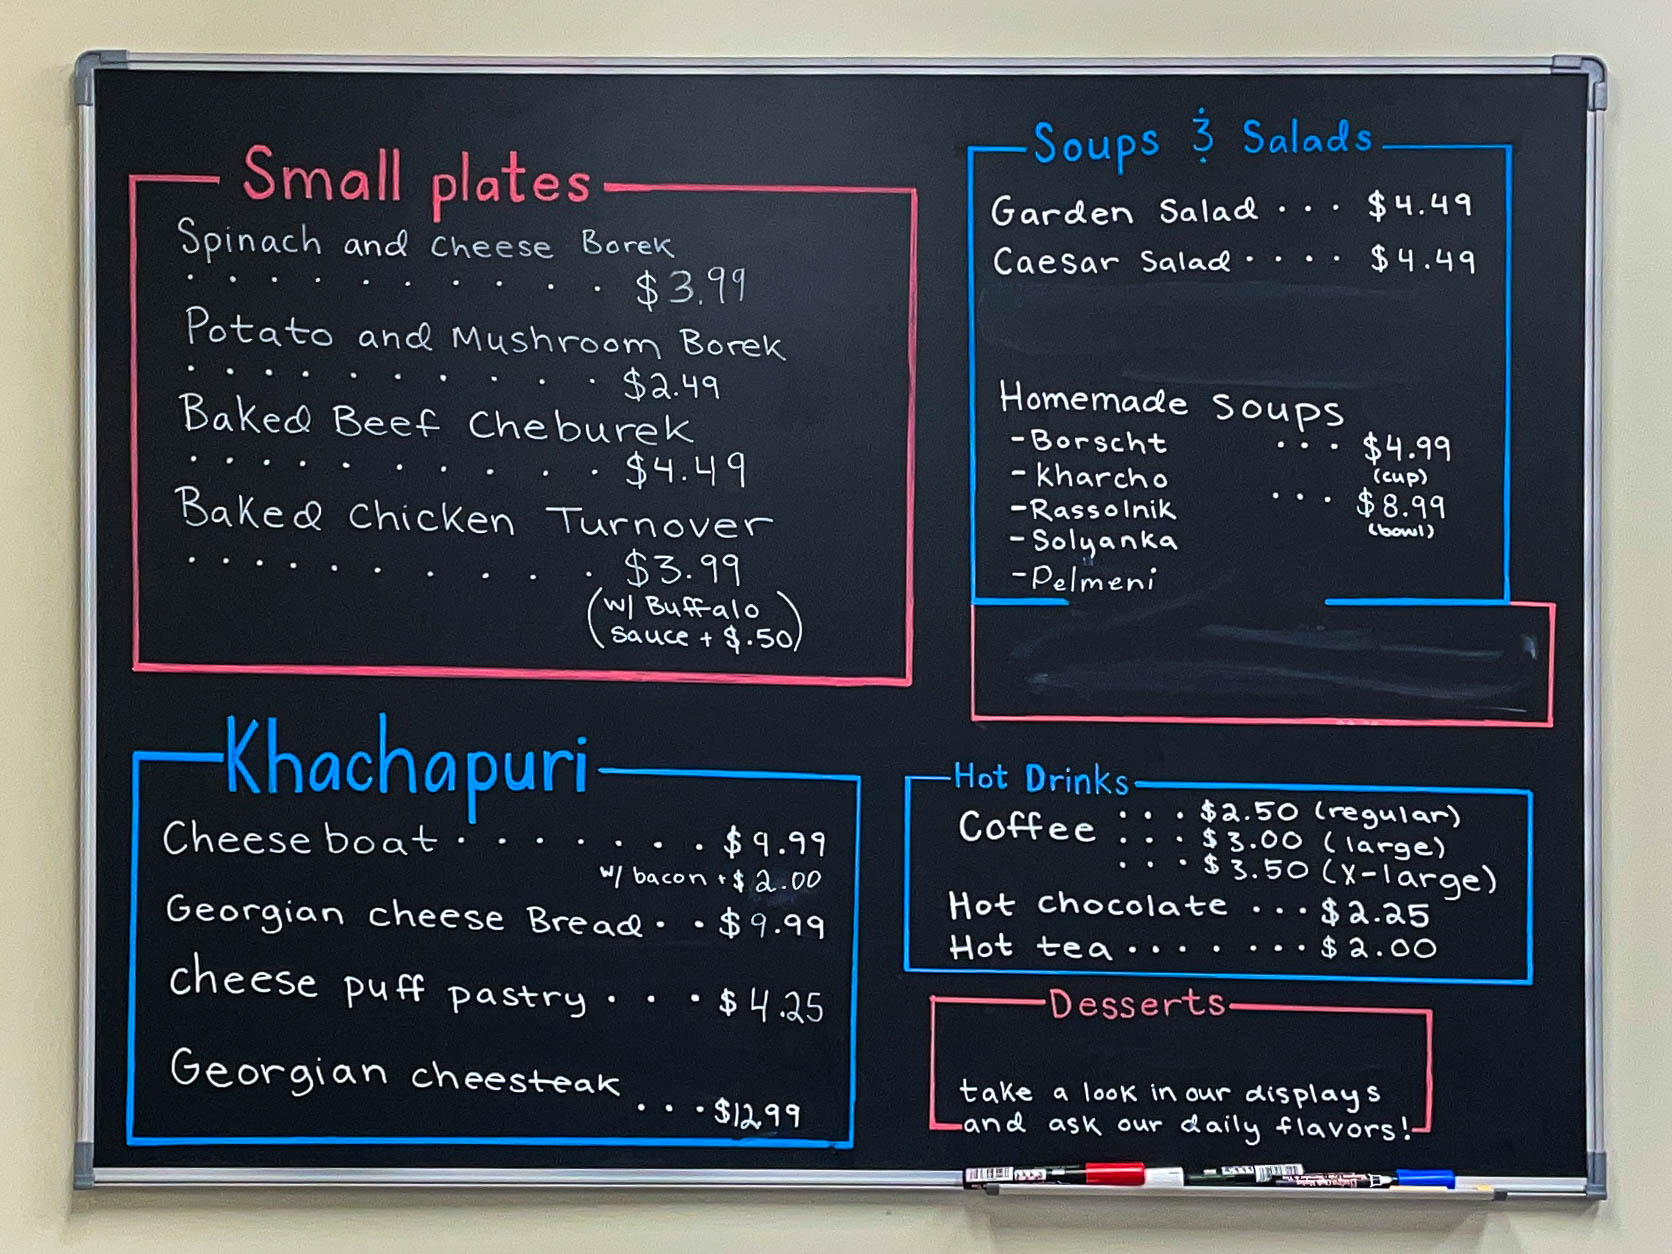 Small plates
Spinach and cheese Borek
. . . . . . . . . . $3.99
Potato and Mushroom Borek
. . . . . . . . . . $2.49
Baked Beef Cheburek
. . . . . . . . . . $4.49
Baked chicken Turnover
. . . . . . . . . . $3.99
(w/ Buffalo
sauce + $.50)
Khachapuri
Cheese boat . . . . . . . $9.99
w/ bacon + $2.00
Georgian cheese Bread . . $9.99
cheese puff pastry . . . $4.25
Georgian cheesteak
. . . $12.99
Soups & Salads
Garden Salad . . . $4.49
Caesar Salad . . . . $4.49
Homemade soups
-Borscht . . . $4.99
(cup)
-Kharcho
. . . $8.99
-Rassolnik
(bowl)
-Solyanka
-Pelmeni
Hot Drinks
Coffee . . . $2.50 (regular)
. . . $3.00 (large)
. . . $3.50 (X-large)
Hot chocolate . . . $2.25
Hot tea . . . . . . . . $2.00
Desserts
take a look in our displays
and ask our daily flavors!